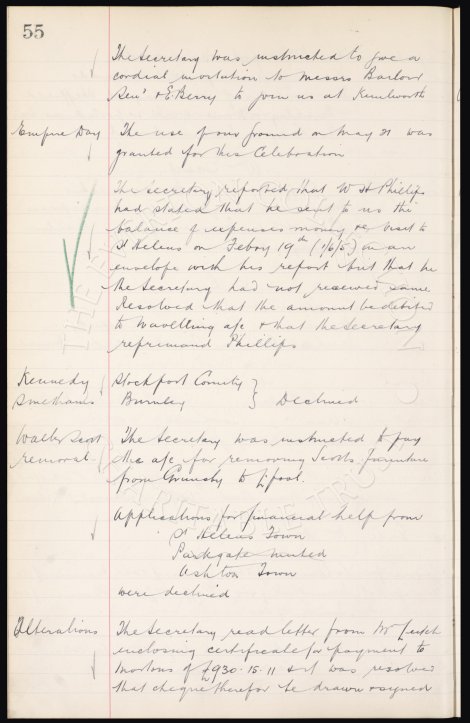 55
The Secretary was instructed to give a
cordial invitation to Messrs Barlow
Senr & E. Berry to join us at Kenilworth
Empire Day The use of our ground on May 21 was
granted for this Celebration
The Secretary reported that W H Phillips
had stated that he sent to us the
balance of expenses money re visit to
St Helens on Febry 19th (1/6/5) in an
envelope with his report but that he
the Secretary had not received same.
Resolved that the amount be debited
to travelling a/c & that the Secretary
reprimand Phillips.
Kennedy Stockport County
Smethams Burnley Declined
Walter Scott The Secretary was instructed to pay
removal. the a/c for removing Scotts furniture
from Grimsby to L'pool.
Applications for financial help from
St Helens Town
Parkgate United
Ashton Town
were declined
Alterations The Secretary read letter from Mr Leitch
enclosing certificate for payment to
Mortons of £930.15.11 & it was resolved
that cheque therefor be drawn & signed